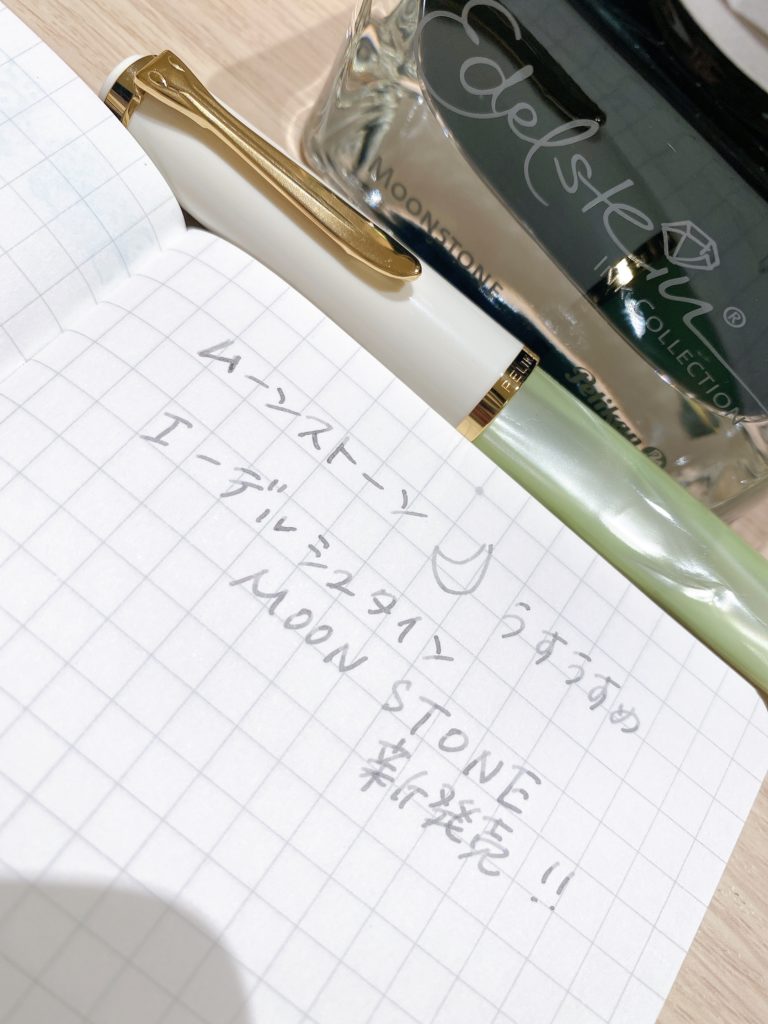 Edelstein®
INK COLLECTION
MOONSTONE
Pelikan®
PELIK
ムーンストーン
エーデルシュタイン
うすうすめ
MOON STONE
新発売!!